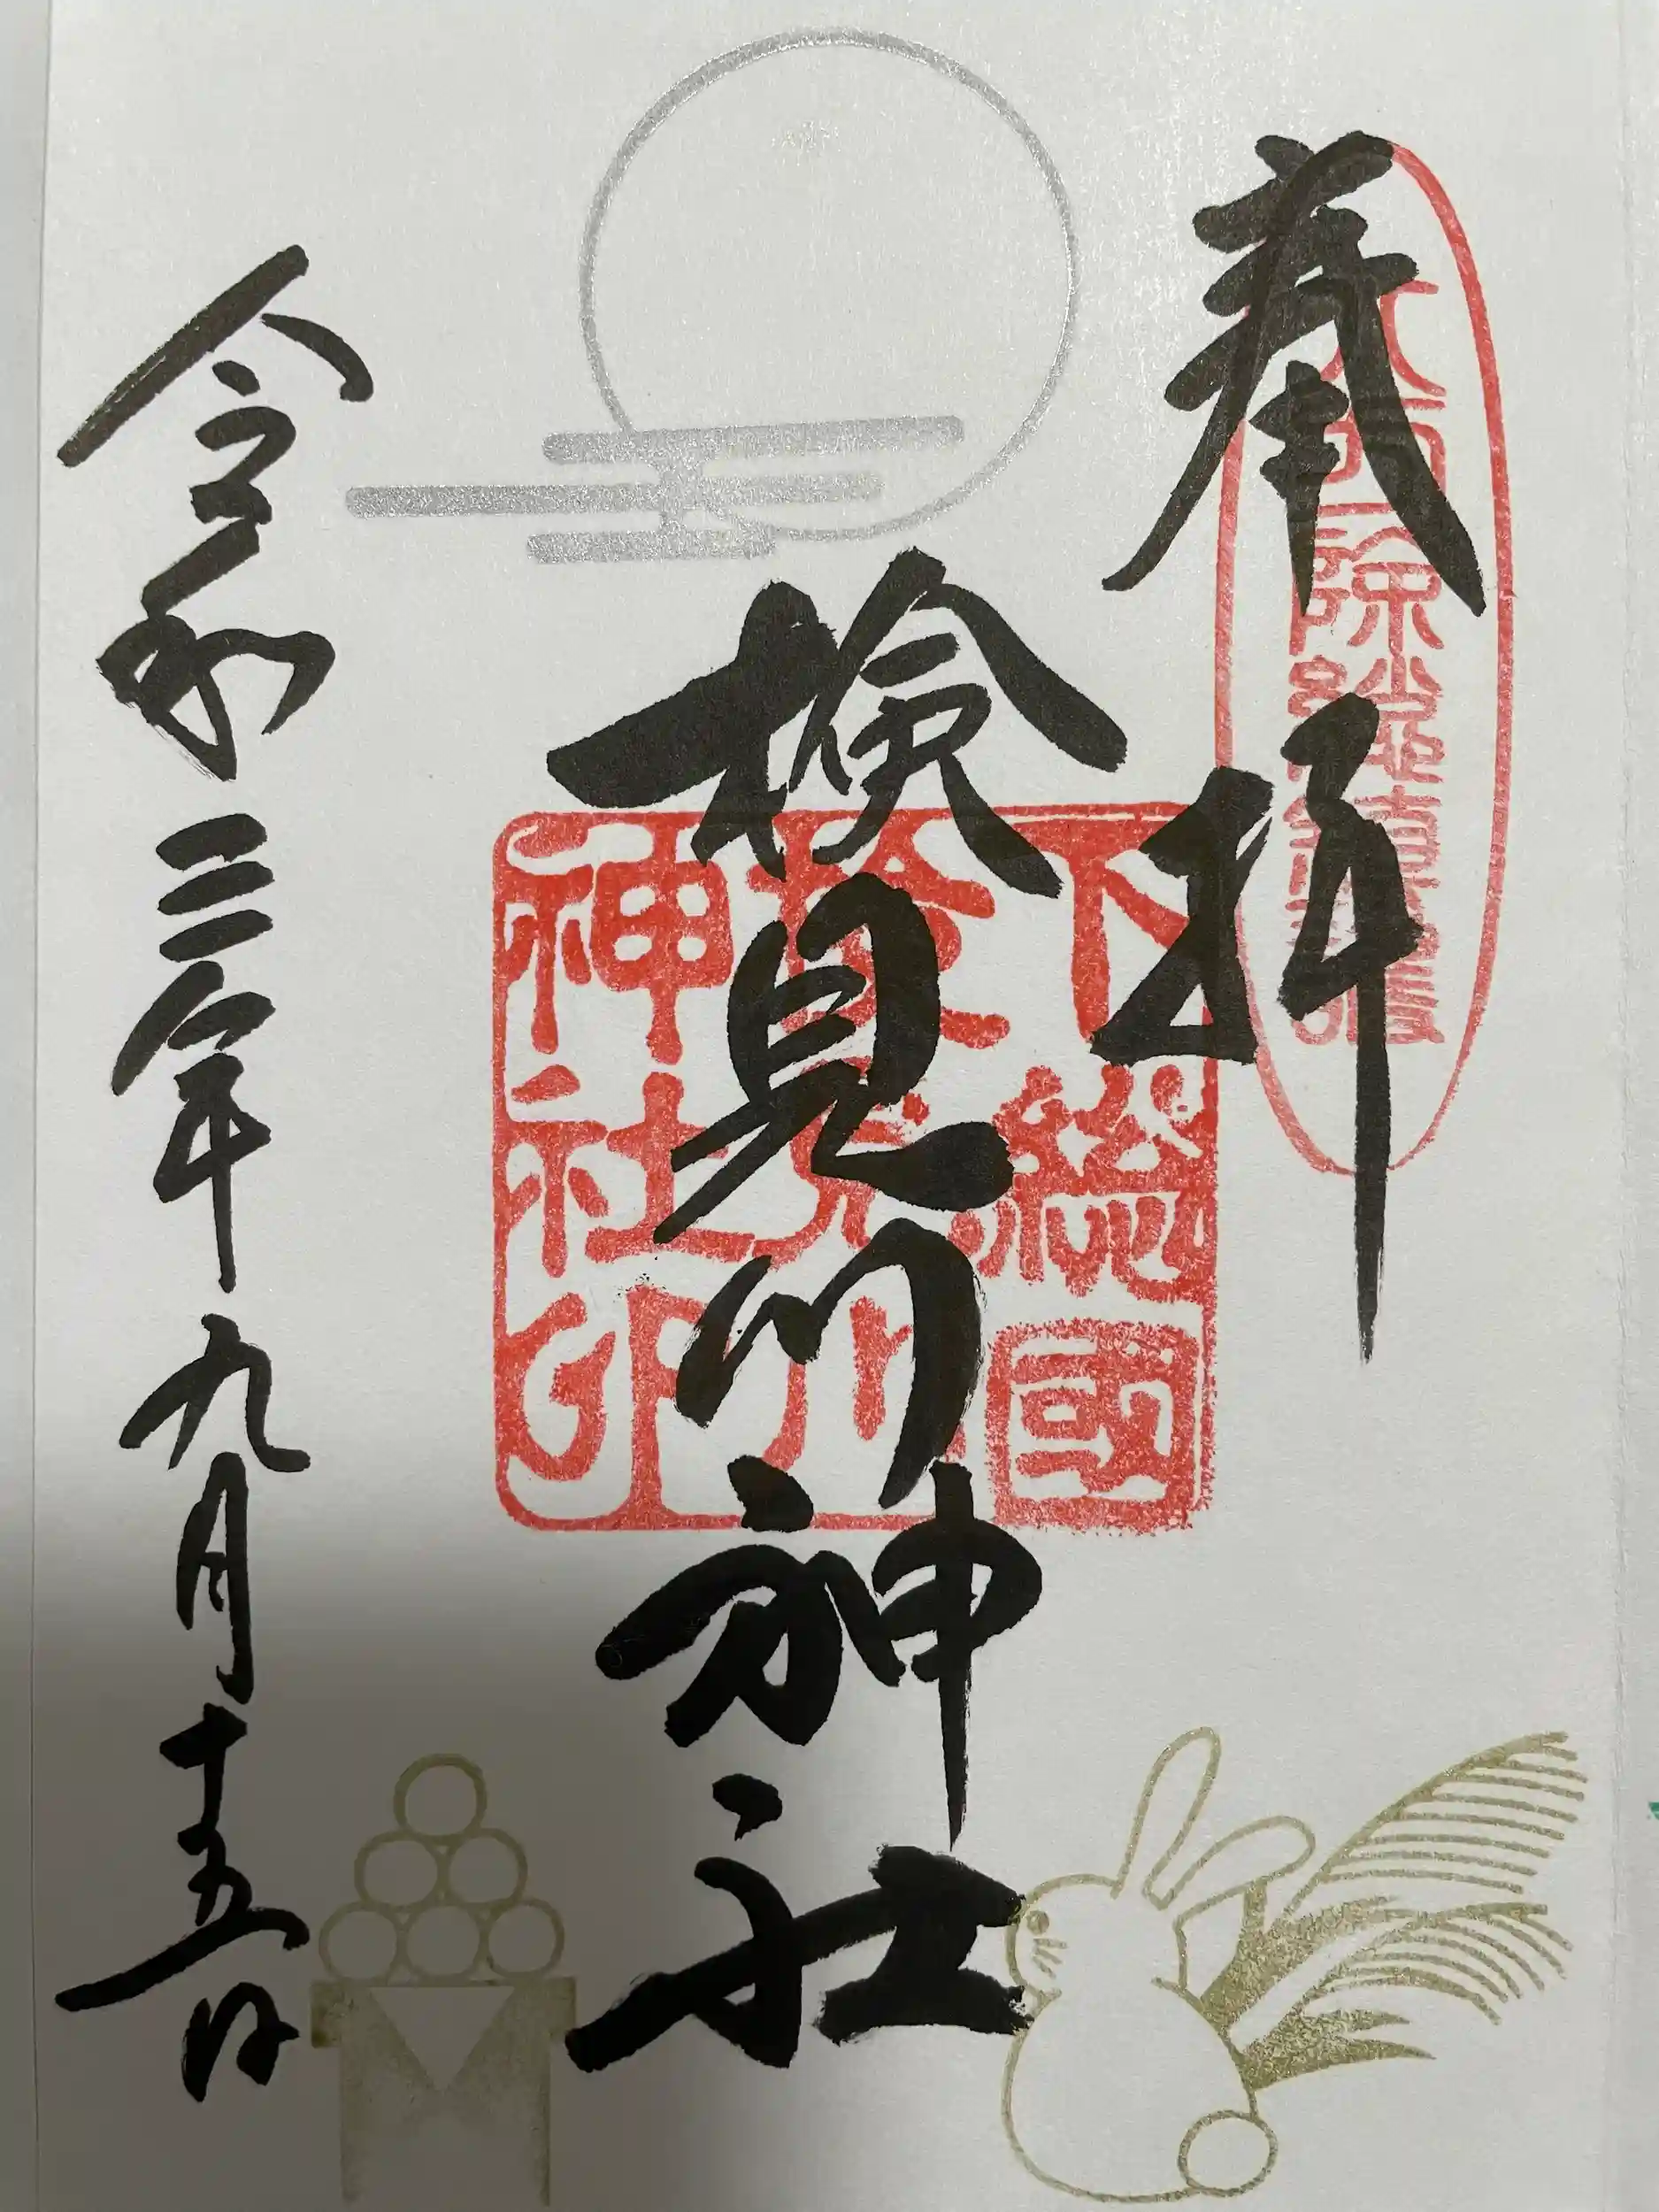 奉拝
八方除
検見川神社
下總國
検見川
神社印
令和三年九月十五日